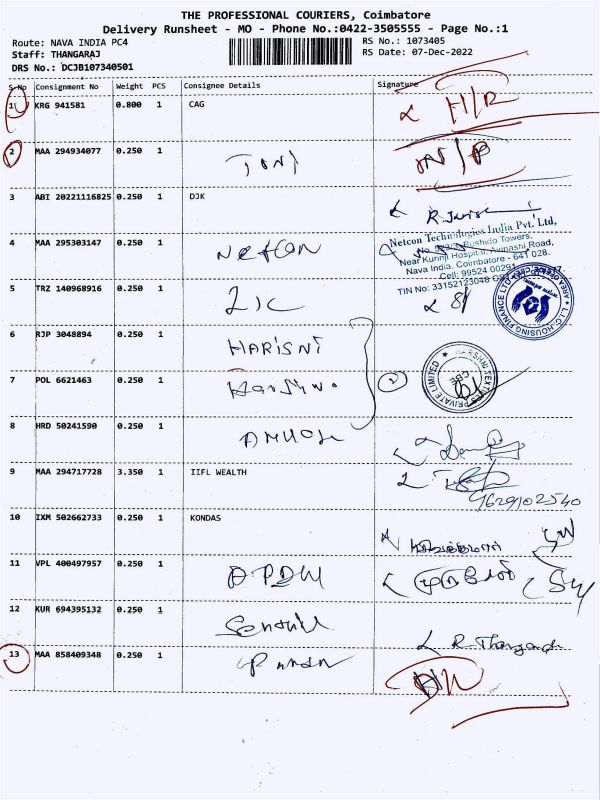 THE PROFESSIONAL COURIERS, Coimbatore
Delivery Runsheet - MO - Phone No.:0422-3505555 - Page No.:1
Route: NAVA INDIA PC4 RS No.: 1073405
Staff: THANGARAJ RS Date: 07-Dec-2022
DRS No.: DCJB107340501
S.No Consignment No Weight PCS Consignee Details Signature
1 KRG 941581 0.800 1 CAG H/R
2 MAA 294934077 0.250 1
3 ABI 20221116825 0.250 1 DJK
4 MAA 295303147 0.250 1 Netcon
Netcon Technologies India Pvt. Ltd,
Bushido Towers,
Near Kurinji Hospital, Avinashi Road,
Nava India, Coimbatore - 641 028.
Cell: 99524 00291
TIN No: 33152123048
5 TRZ 140968916 0.250 1 LIC
L.I.C. HOUSING FINANCE LTD
AREA OFFICE
6 RJP 3048894 0.250 1 HARISNI
7 POL 6621463 0.250 1
HARSHNI TEXTILES PRIVATE LIMITED
CBE
8 HRD 50241590 0.250 1
9 MAA 294717728 3.350 1 IIFL WEALTH
9629102540
10 IXM 502662733 0.250 1 KONDAS
11 VPL 400497957 0.250 1
12 KUR 694395132 0.250 1 Senthil R. Thangaraj
13 MAA 858409348 0.250 1